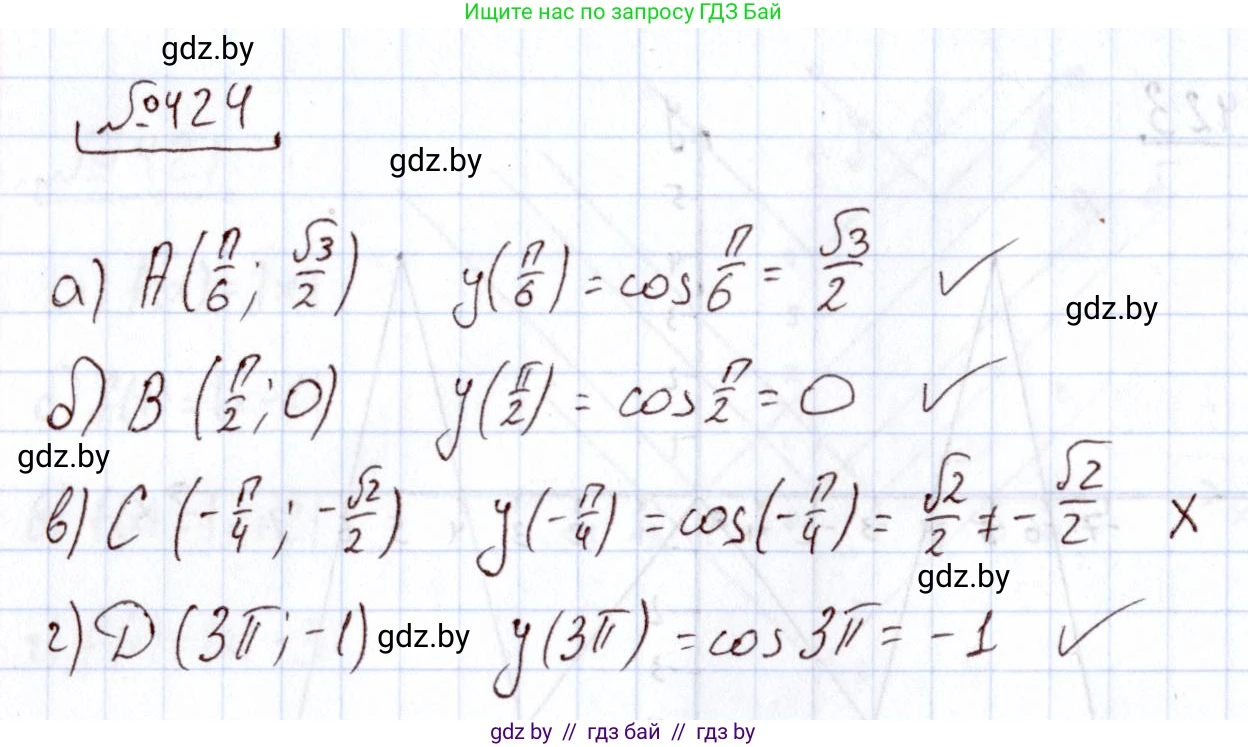 Ищите нас по запросу ГДЗ Бай
gdz.by
№424
gdz.by
а) A(π/6; √3/2) y(π/6) = cos π/6 = √3/2 ✓
gdz.by
б) B (π/2; 0) y(π/2) = cos π/2 = 0 ✓
gdz.by
в) C (-π/4; -√2/2) y(-π/4) = cos(-π/4) = √2/2 ≠ -√2/2 ✗
gdz.by
г) D (3π; -1) y(3π) = cos 3π = -1 ✓
gdz.by
gdz.by // гдз бай // гдз by